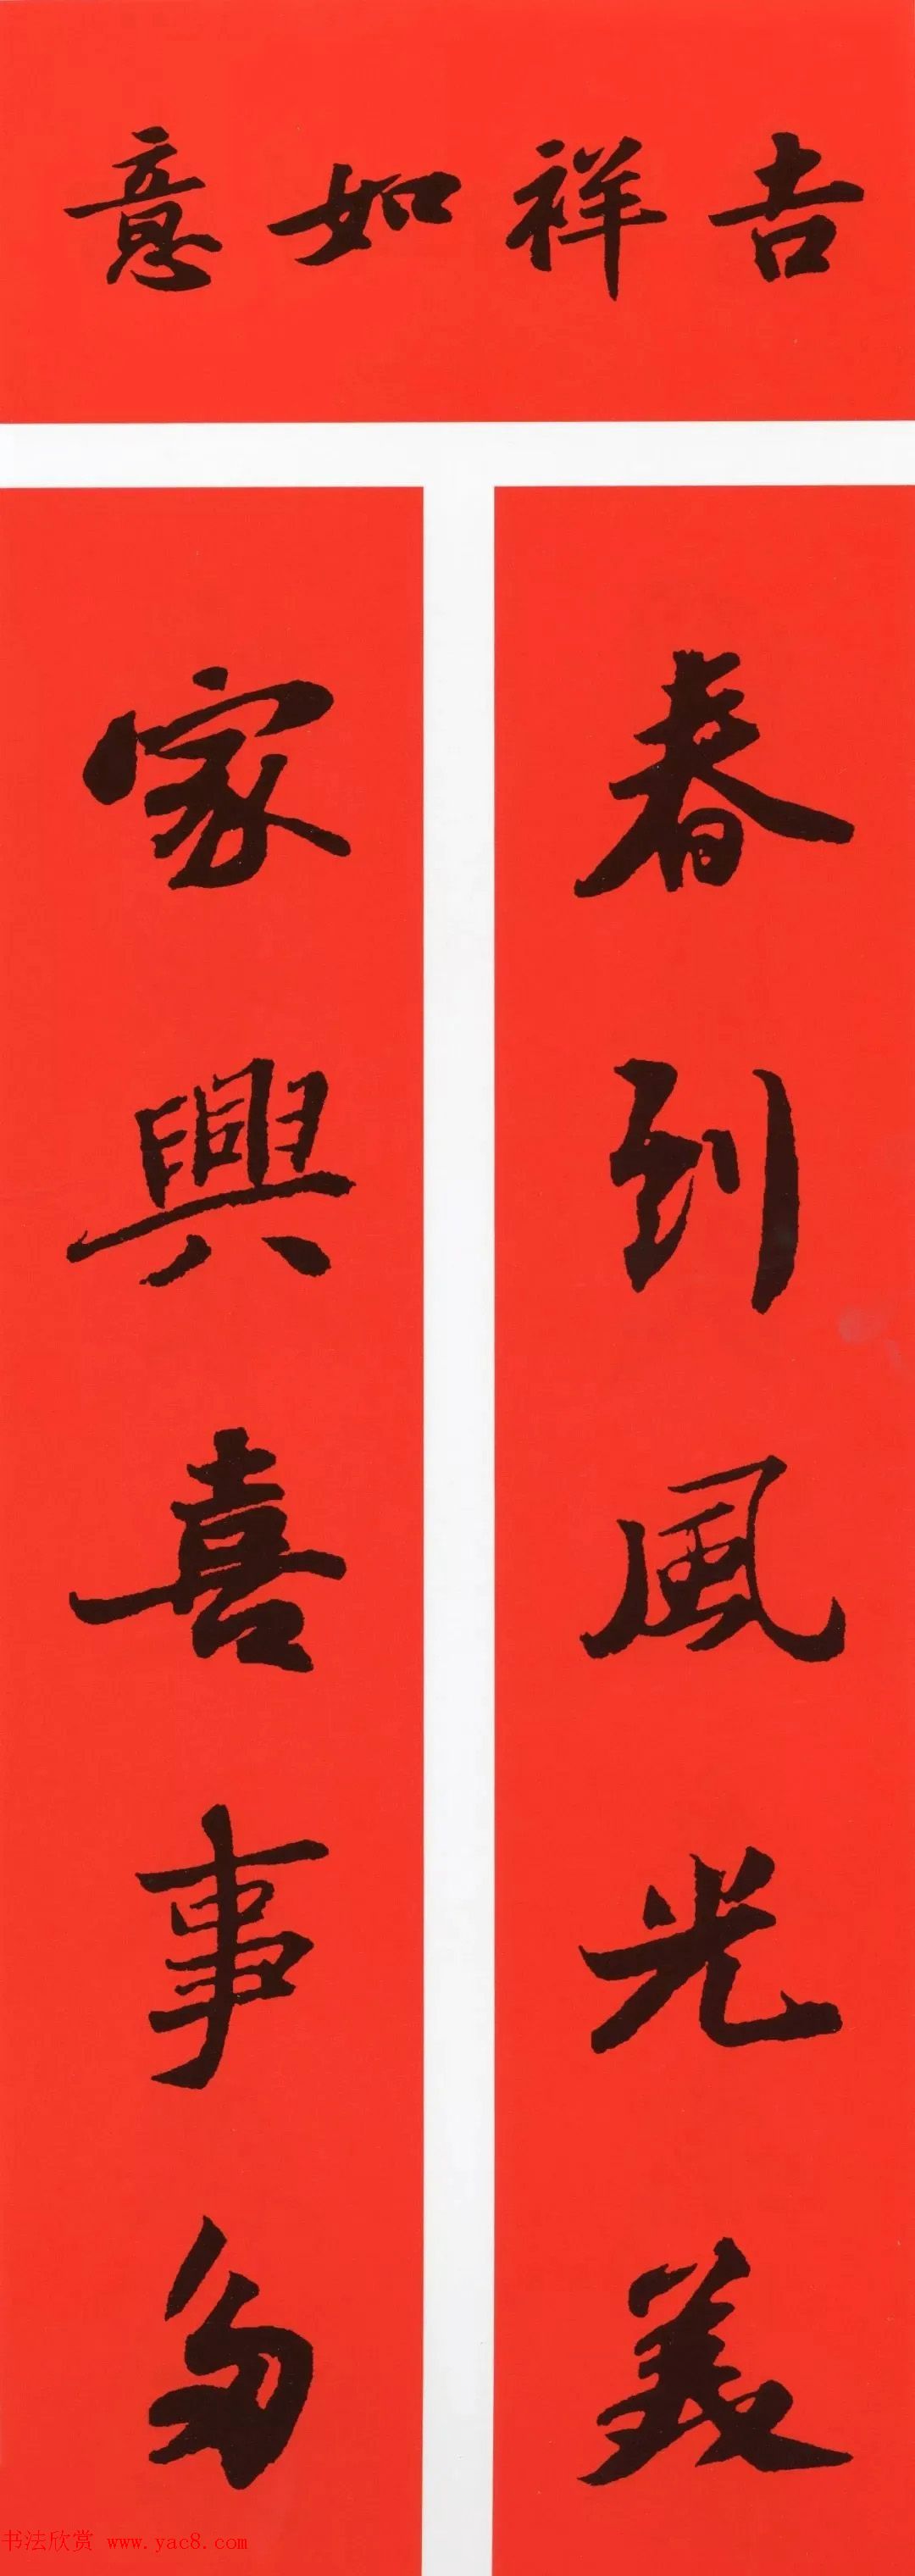 吉祥如意
春到風光美
家興喜事多
书法欣赏 www.yac8.com